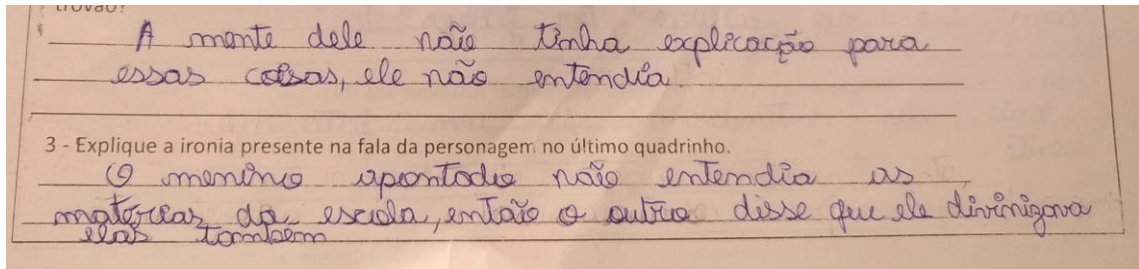 trovão?
A mente dele não tinha explicação para
essas coisas, ele não entendia
3 - Explique a ironia presente na fala da personagem no último quadrinho.
O menino apontado não entendia as
matérias da escola, então o outro disse que ele divinizava
elas também